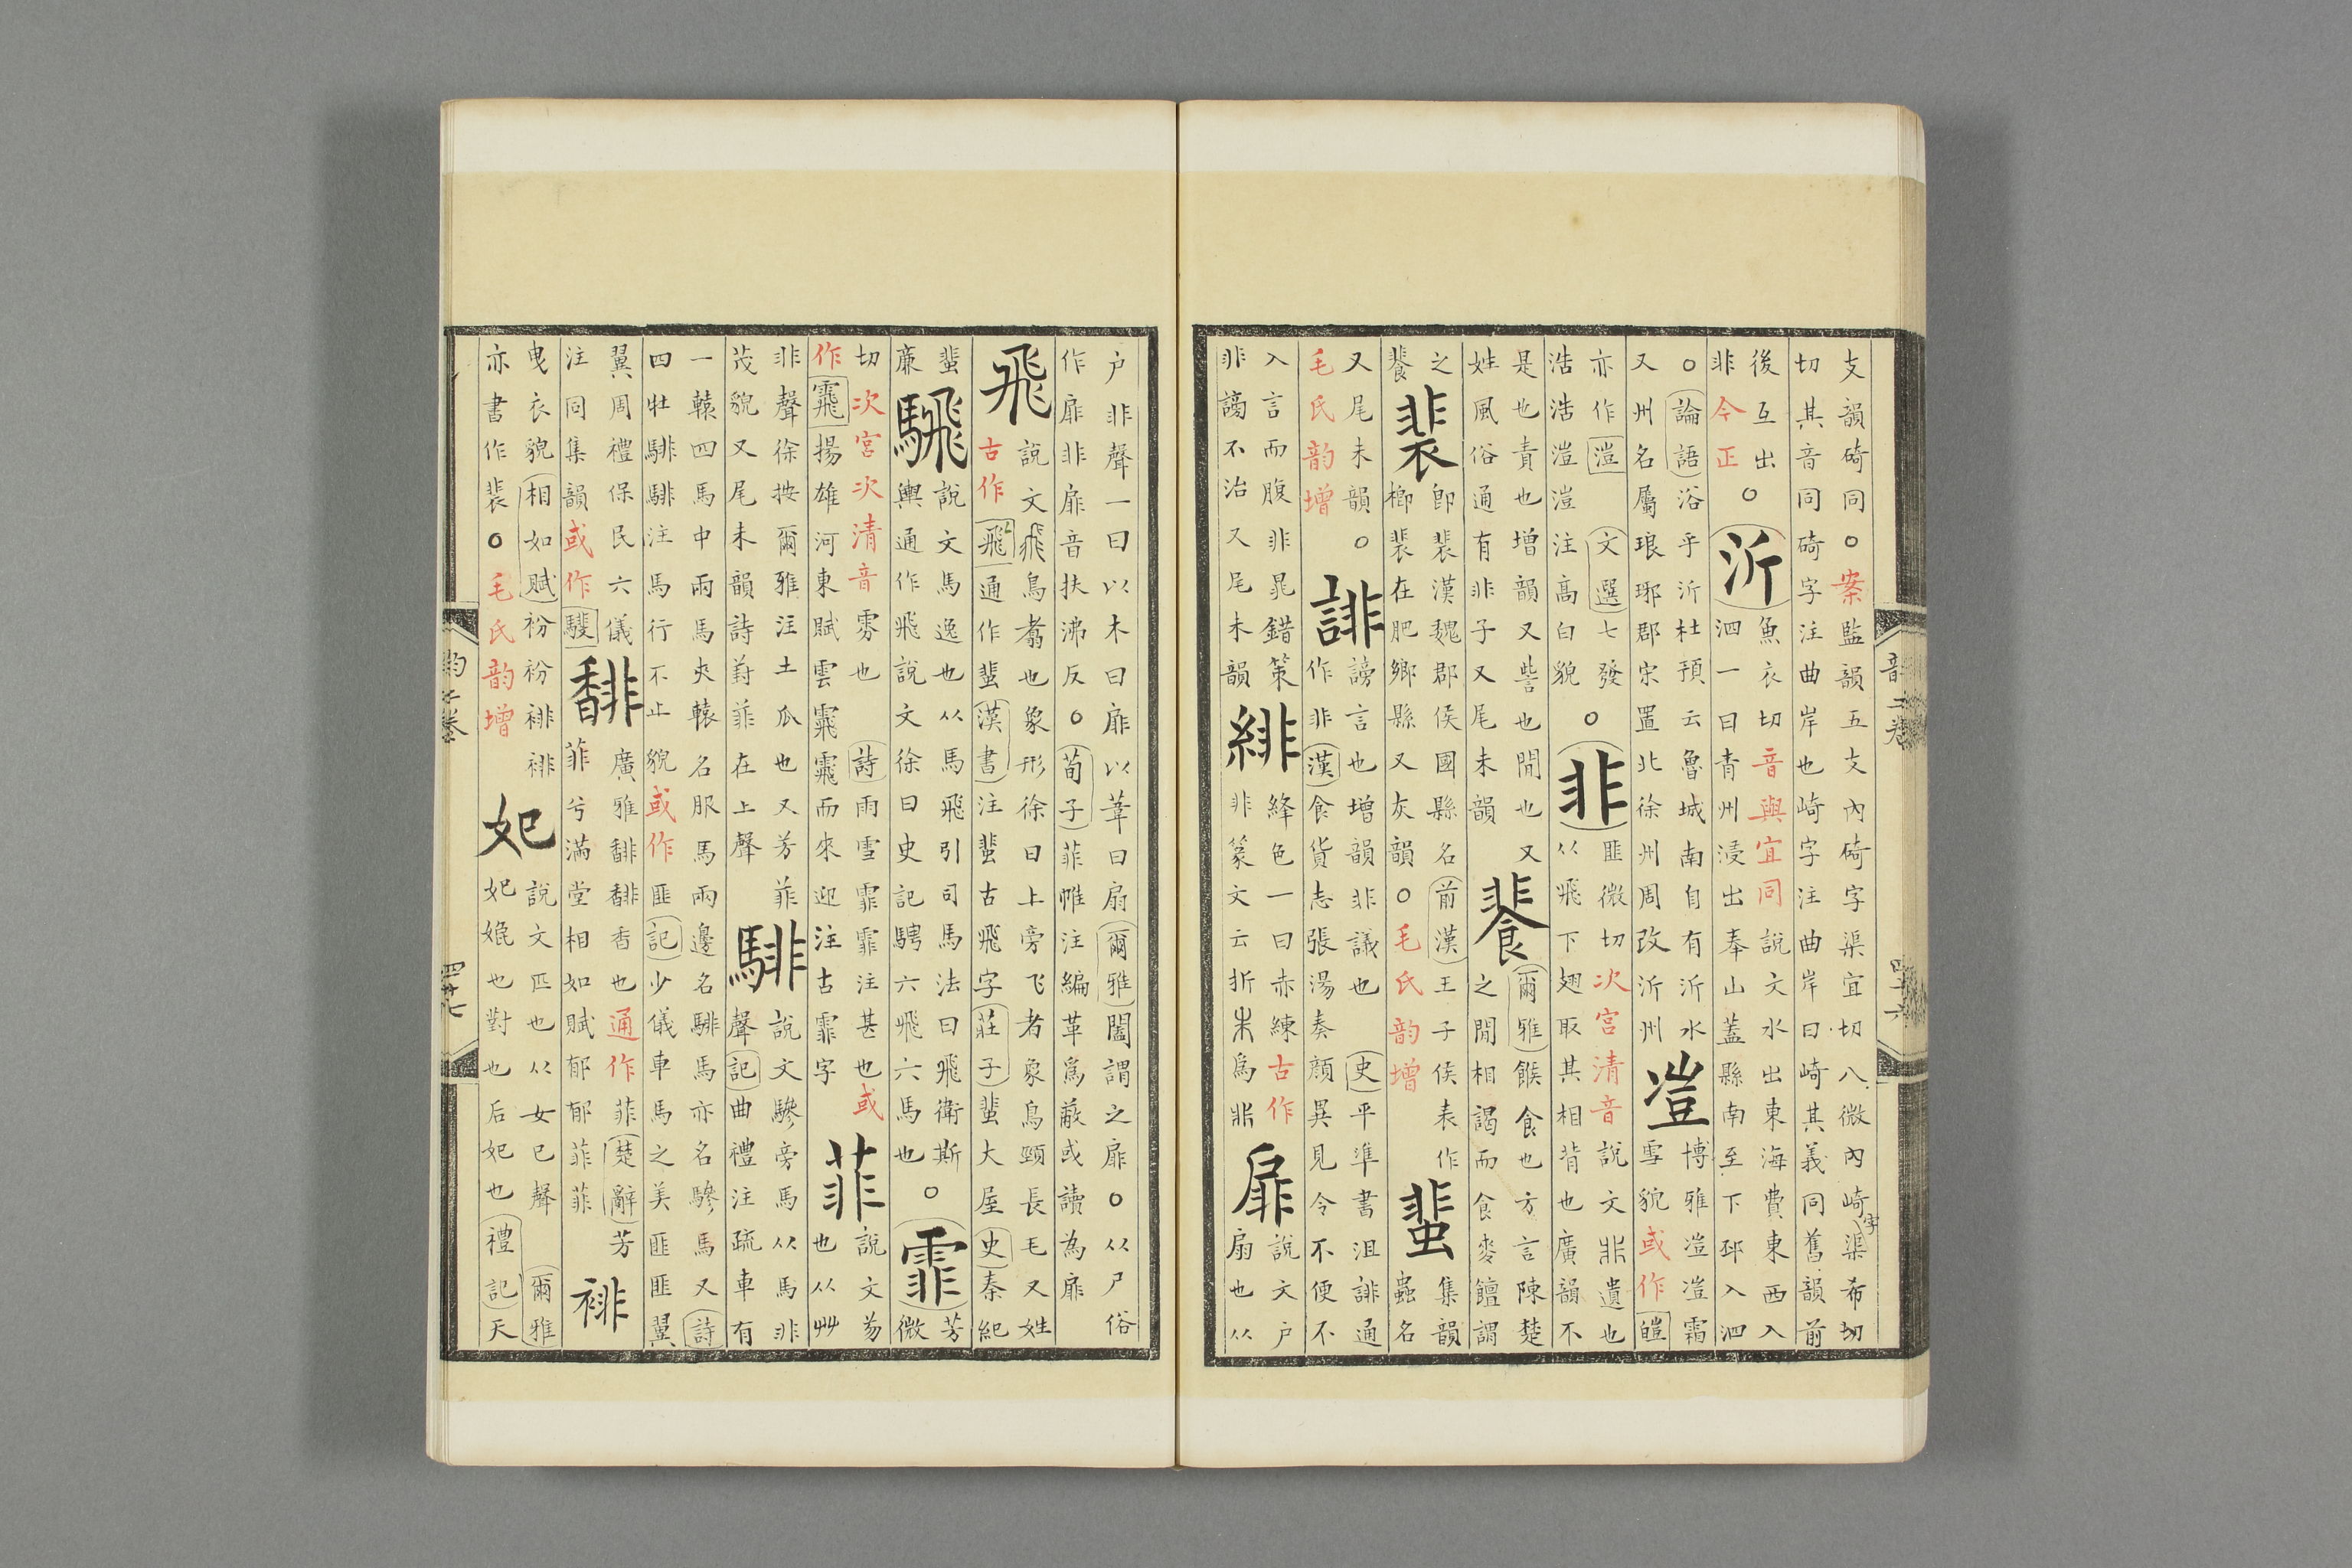 支韻碕同○案監韻五支內碕字渠宜切八微內崎字渠希切
切其音同碕字注曲岸也崎字注曲岸曰崎其義同舊韻前
後互出○
非今正
沂
魚衣切音與宜同說文水出東海費東西入
泗一曰青州浸出奉山蓋縣南至下邳入泗
○論語浴乎沂杜預云魯城南自有沂水
又州名屬琅琊郡宋置北徐州周改沂州
凒
博雅凒凒霜
雪貌或作皚
亦作溰文選七發○
浩浩溰溰注高白貌
非
匪微切次宮清音說文非遺也
从飛下翅取其相背也廣韻不
是也責也增韻又訾也閒也又
姓風俗通有非子又尾未韻
餥
爾雅餱食也方言陳楚
之閒相謁而食麥饘謂
之
餥
裴
卽裴漢魏郡侯國縣名前漢王子侯表作
㮛裴在肥鄉縣又灰韻○毛氏韵增
蜚
集韻
蟲名
又尾未韻○
毛氏韵增
誹
謗言也增韻非議也史平準書沮誹通
作非漢食貨志張湯奏顏異見令不便不
入言而腹非晁錯策
非謗不治又尾未韻
緋
絳色一曰赤練古作
非篆文云折朱為非
扉
說文户
扇也从
户非聲一曰以木曰扉以葦曰扇爾雅闔謂之扉○从户俗
作扉非扉音扶沸反○荀子菲帷注編草爲蔽或讀為扉
飛
說文飛鳥翥也象形徐曰上旁飞者象鳥頸長毛又姓
古作飛通作蜚漢書注蜚古飛字莊子蜚大屋史秦紀
蜚
廉
騛
說文馬逸也从馬飛引司馬法曰飛衛斯
輿通作飛說文徐曰史記騁六飛六馬也○
霏
芳
微
切次宮次清音雰也詩雨雪霏霏注甚也或
作䬠揚雄河東賦雲䬠䬠而來迎注古霏字
菲
說文芴
也从艸
非聲徐按爾雅注土瓜也又芳菲
茂貌又尾未韻詩葑菲在上聲
騑
說文驂旁馬从馬非
聲記曲禮注疏車有
一轅四馬中兩馬夾轅名服馬兩邊名騑馬亦名驂馬又詩
四牡騑騑注馬行不止貌或作匪記少儀車馬之美匪匪翼
翼周禮保民六儀
注同集韻或作
馡
廣雅馡馡香也通作菲楚辭芳
菲兮滿堂相如賦郁郁菲菲
裶
曳衣貌相如賦衯衯裶裶
亦書作裴○毛氏韵增
妃
說文匹也从女巳聲爾雅
妃媲也對也后妃也禮記天